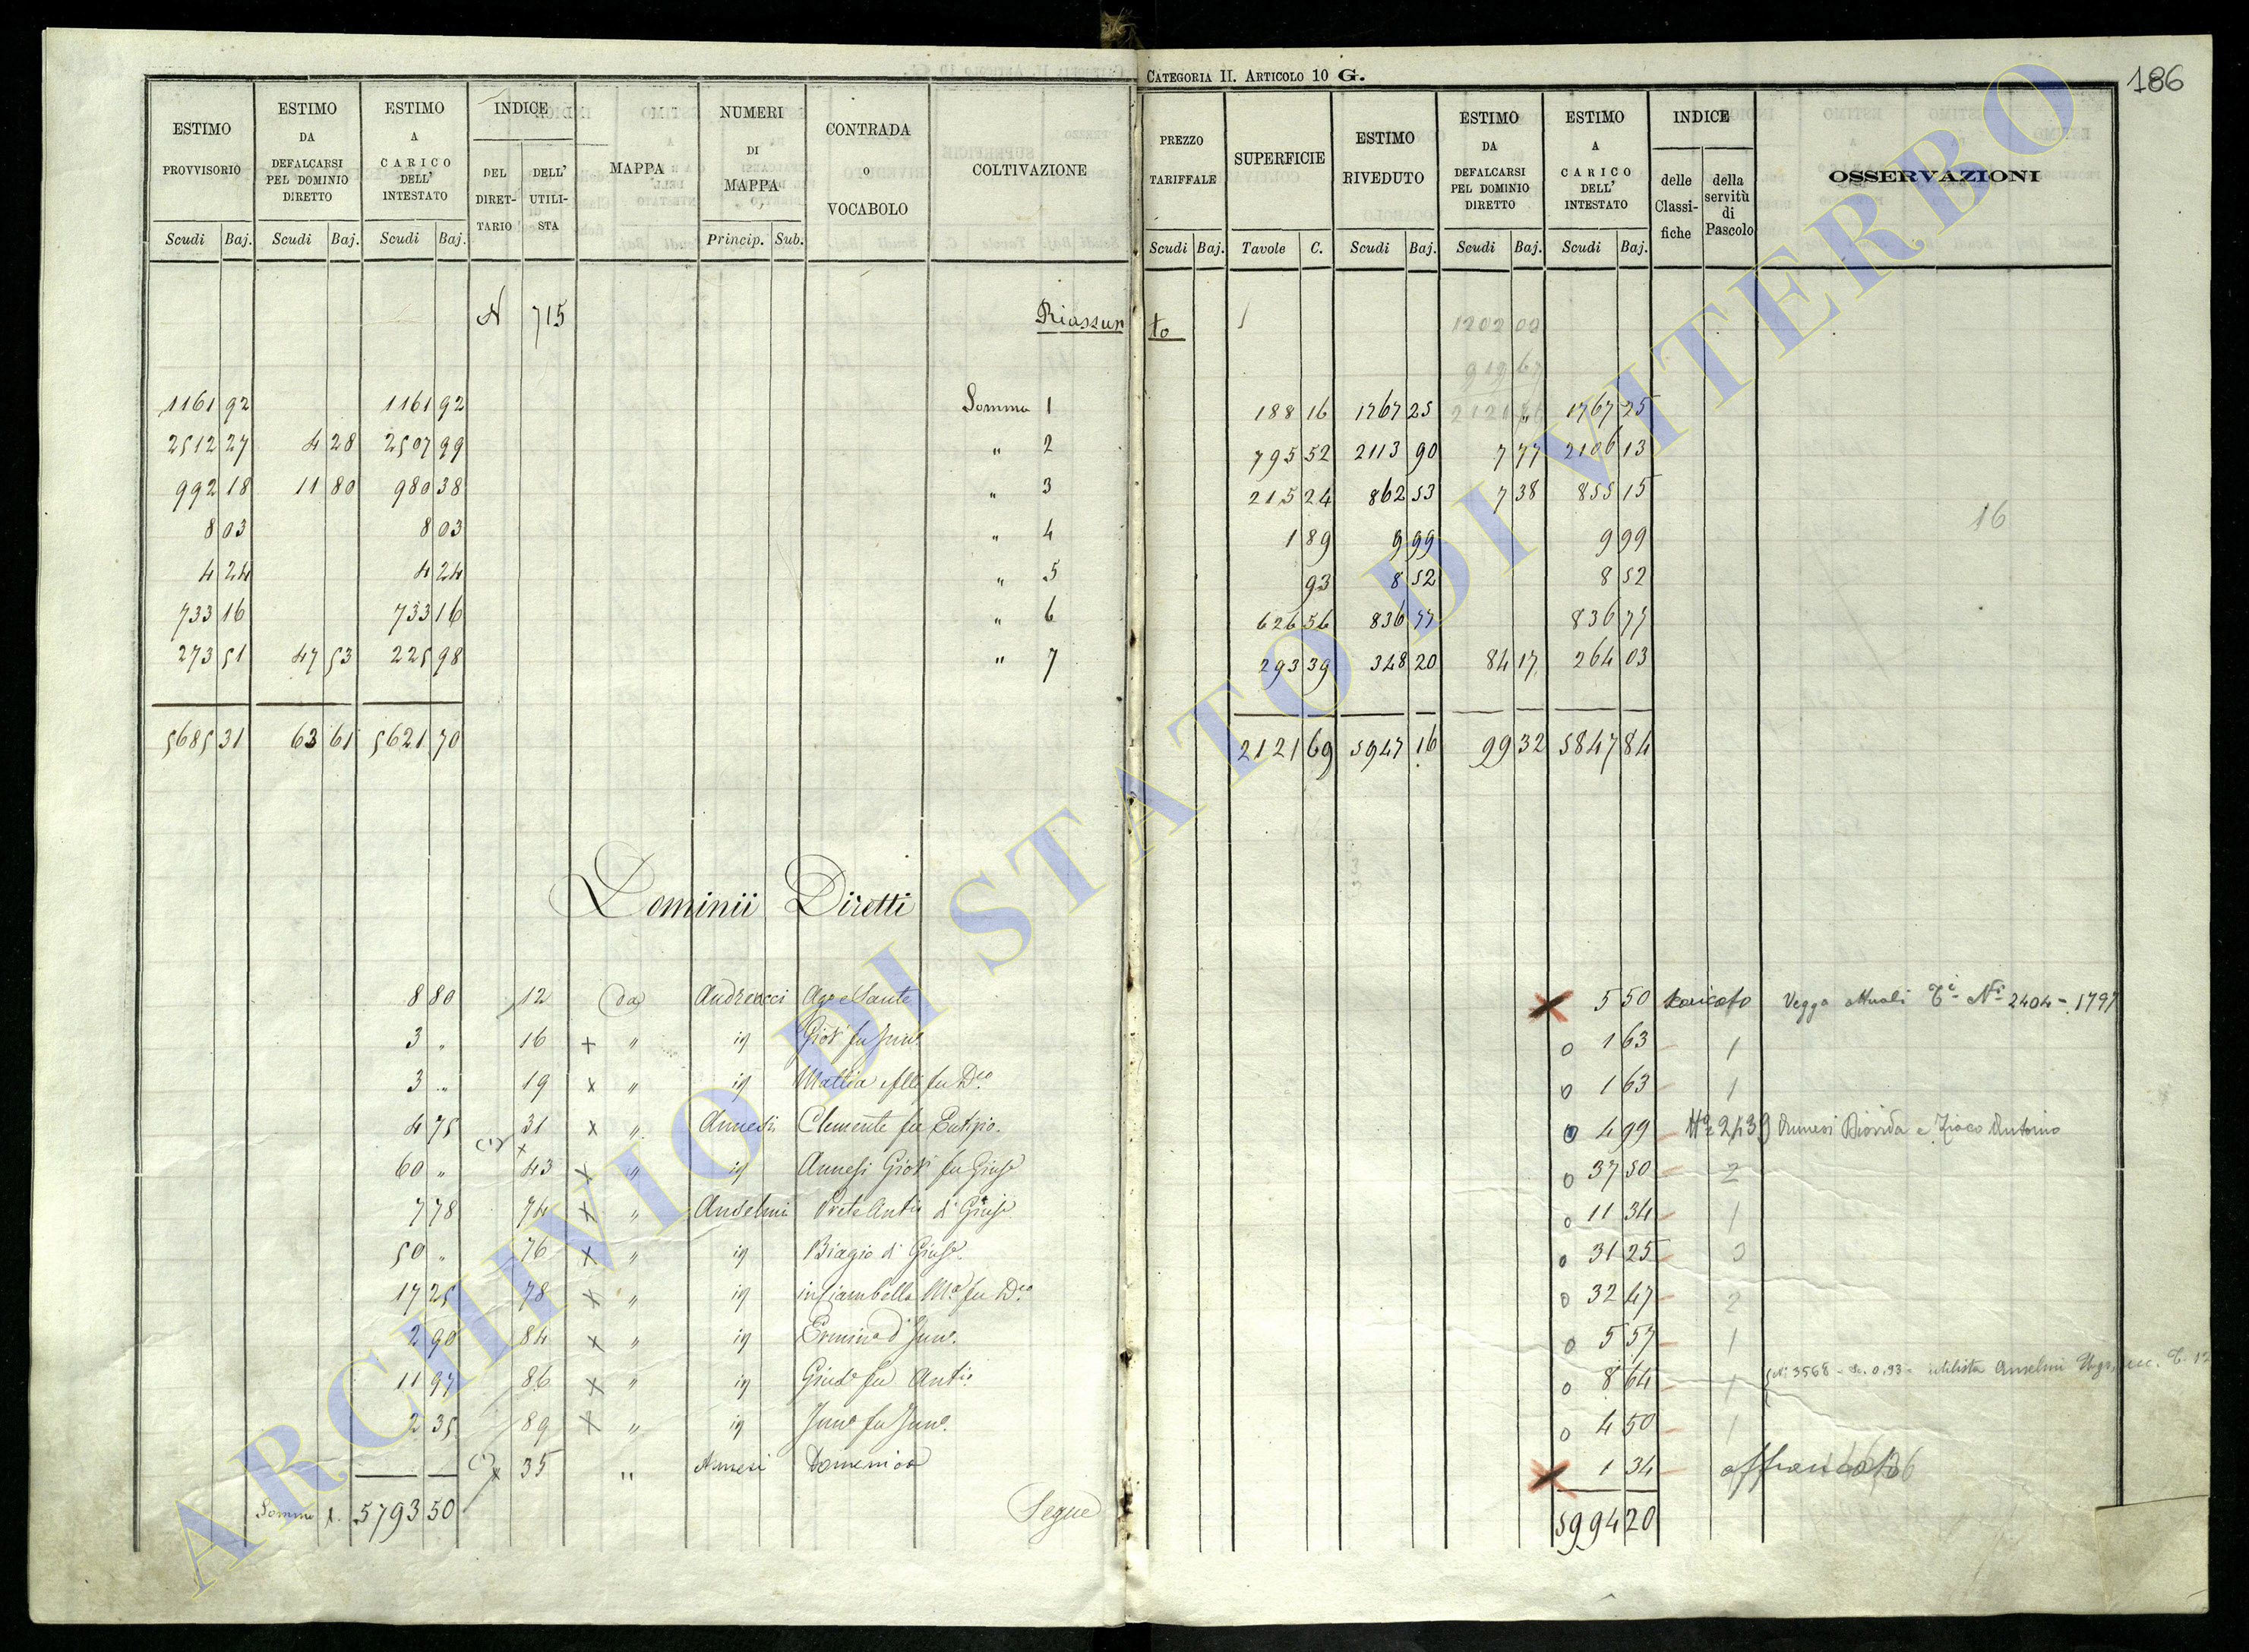 CATEGORIA II. ARTICOLO 10 G.
186
ESTIMO PROVVISORIO Scudi Baj.
ESTIMO DA DEFALCARSI PEL DOMINIO DIRETTO Scudi Baj.
ESTIMO A CARICO DELL' INTESTATO Scudi Baj.
INDICE DEL DIRETTARIO DELL' UTILISTA
MAPPA
NUMERI DI MAPPA Princip. Sub.
CONTRADA O VOCABOLO
COLTIVAZIONE
PREZZO TARIFFALE Scudi Baj.
SUPERFICIE Tavole C.
ESTIMO RIVEDUTO Scudi Baj.
ESTIMO DA DEFALCARSI PEL DOMINIO DIRETTO Scudi Baj.
ESTIMO A CARICO DELL' INTESTATO Scudi Baj.
INDICE delle Classifiche della servitù di Pascolo
OSSERVAZIONI
N 715 Riassunto 1202 02
919 67
1161 92 1161 92 Somma 1 188 16 1767 25 2121 1767 25
2512 27 4 28 2507 99 " 2 795 52 2113 90 7 77 2106 13
992 18 11 80 980 38 " 3 215 24 862 53 7 38 855 15
16
8 03 8 03 " 4 1 89 9 99 9 99
4 24 4 24 " 5 93 8 52 8 52
733 16 733 16 " 6 626 56 836 77 836 77
273 51 47 53 225 98 " 7 293 39 348 20 84 17 264 03
5685 31 63 61 5621 70 2121 69 5947 16 99 32 5847 84
Dominii Diretti
8 80 12 da Andreucci 5 50 scaricato Vegga attuali Ni 2404 - 1797
3 " 16 x " id Giov. fu 0 1 63 1
3 " 19 x " id Mattia fu Dco 0 1 63 1
4 75 31 x " Annesi Clemente fu Eutizio 0 4 99 2439 Annesi e Antonio
60 " 43 x " id Annesi Giov. fu Giuse 0 37 50 2
7 78 74 x " Anselmi Prete Anto di Giuse 0 11 34 1
50 " 76 x " id Biagio di Giuse 0 31 25 0
17 25 78 x " id in Ciambella Ma fu Dco 0 32 47 2
2 90 84 x " id 0 5 57 1
11 97 86 x " id Giuse fu Anto 0 8 64 1 No 3568 - Sc. 0.93 - utilista Anselmi
2 35 89 x " id fu 0 4 50 1
35 " Annesi Domenico 1 34 affrancato
Somma 5793 50 Segue 5994 20
ARCHIVIO DI STATO DI VITERBO